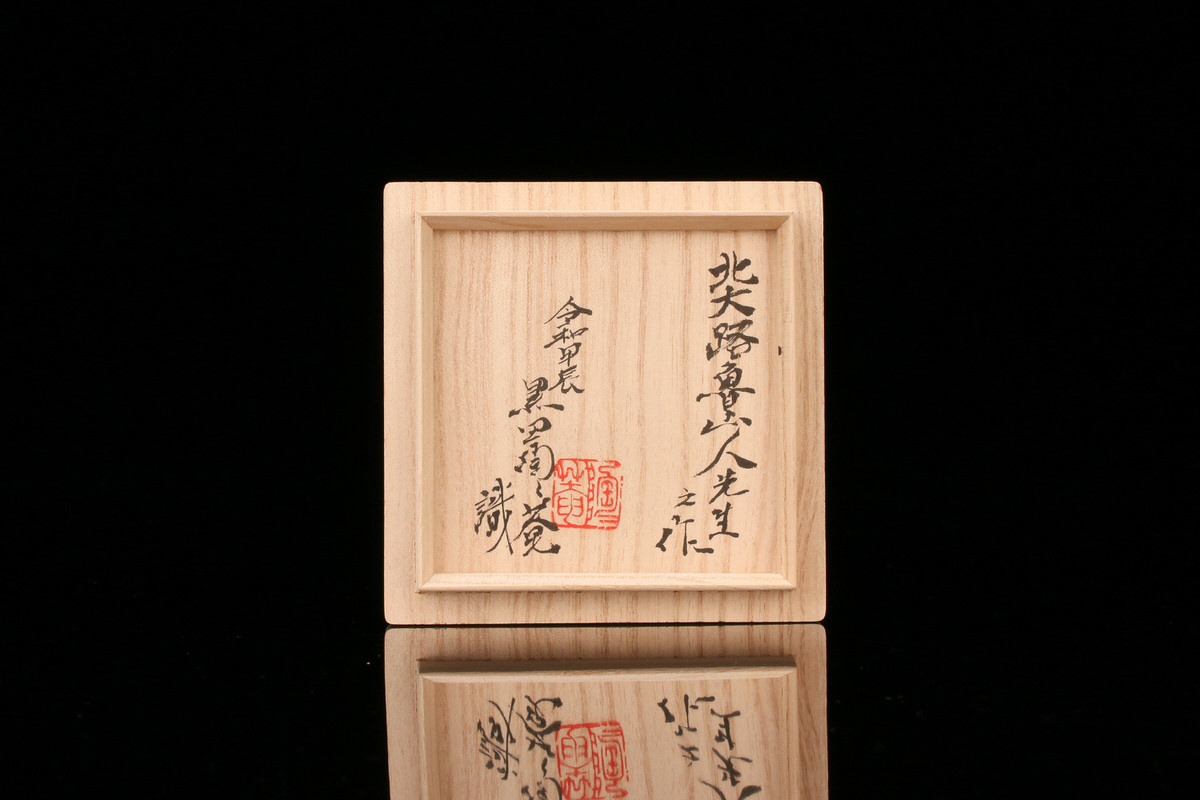 北大路魯山人先生
之作
令和甲辰
黒田陶々菴
識